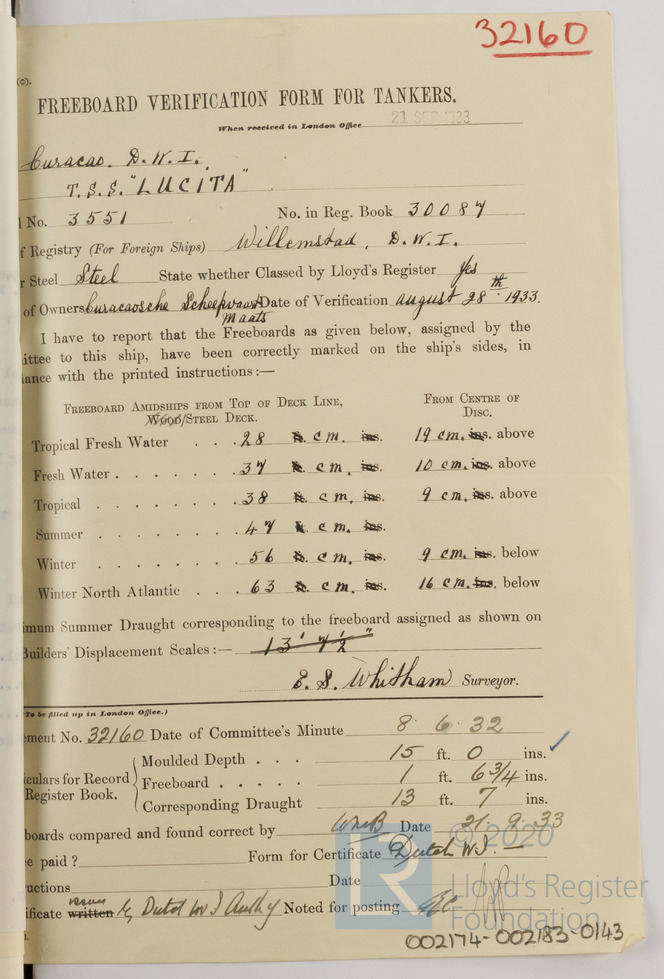 32160
(c).
FREEBOARD VERIFICATION FORM FOR TANKERS.
When received in London Office 21 SEP 1933
Curacao. D.W.I.
T.S.S. "LUCITA"
l No. 3551 No. in Reg. Book 30087
f Registry (For Foreign Ships) Willemstad, D.W.I.
r Steel Steel State whether Classed by Lloyd's Register Yes
of Owners Curacaosche Scheepvaart Maats Date of Verification August 28th 1933.
I have to report that the Freeboards as given below, assigned by the
ittee to this ship, have been correctly marked on the ship's sides, in
lance with the printed instructions:—
Freeboard Amidships from Top of Deck Line, From Centre of
Wood/Steel Deck. Disc.
Tropical Fresh Water . . . 28 ft. cm. ins. 19 cm. ins. above
Fresh Water . . . . . . . 37 ft. cm. ins. 10 cm. ins. above
Tropical . . . . . . . . 38 ft. cm. ins. 9 cm. ins. above
Summer . . . . . . . . 47 ft. cm. ins.
Winter . . . . . . . . 56 ft. cm. ins. 9 cm. ins. below
Winter North Atlantic . . . 63 ft. cm. ins. 16 cm. ins. below
imum Summer Draught corresponding to the freeboard assigned as shown on
Builders' Displacement Scales:— 13' 7½"
E. S. Whitham Surveyor.
To be filled up in London Office.)
ement No. 32160 Date of Committee's Minute 8 . 6 . 32
Moulded Depth . . . 15 ft. 0 ins. ✓
iculars for Record Freeboard . . . . . 1 ft. 6 3/4 ins.
Register Book. Corresponding Draught 13 ft. 7 ins.
boards compared and found correct by Date 21 . 9 . 33
e paid ? Form for Certificate Dutch W.I. —
uctions Date
ificate written issued by Dutch W I Auth'y Noted for posting
© 2020
Lloyd's Register
Foundation
002174-002183-0143